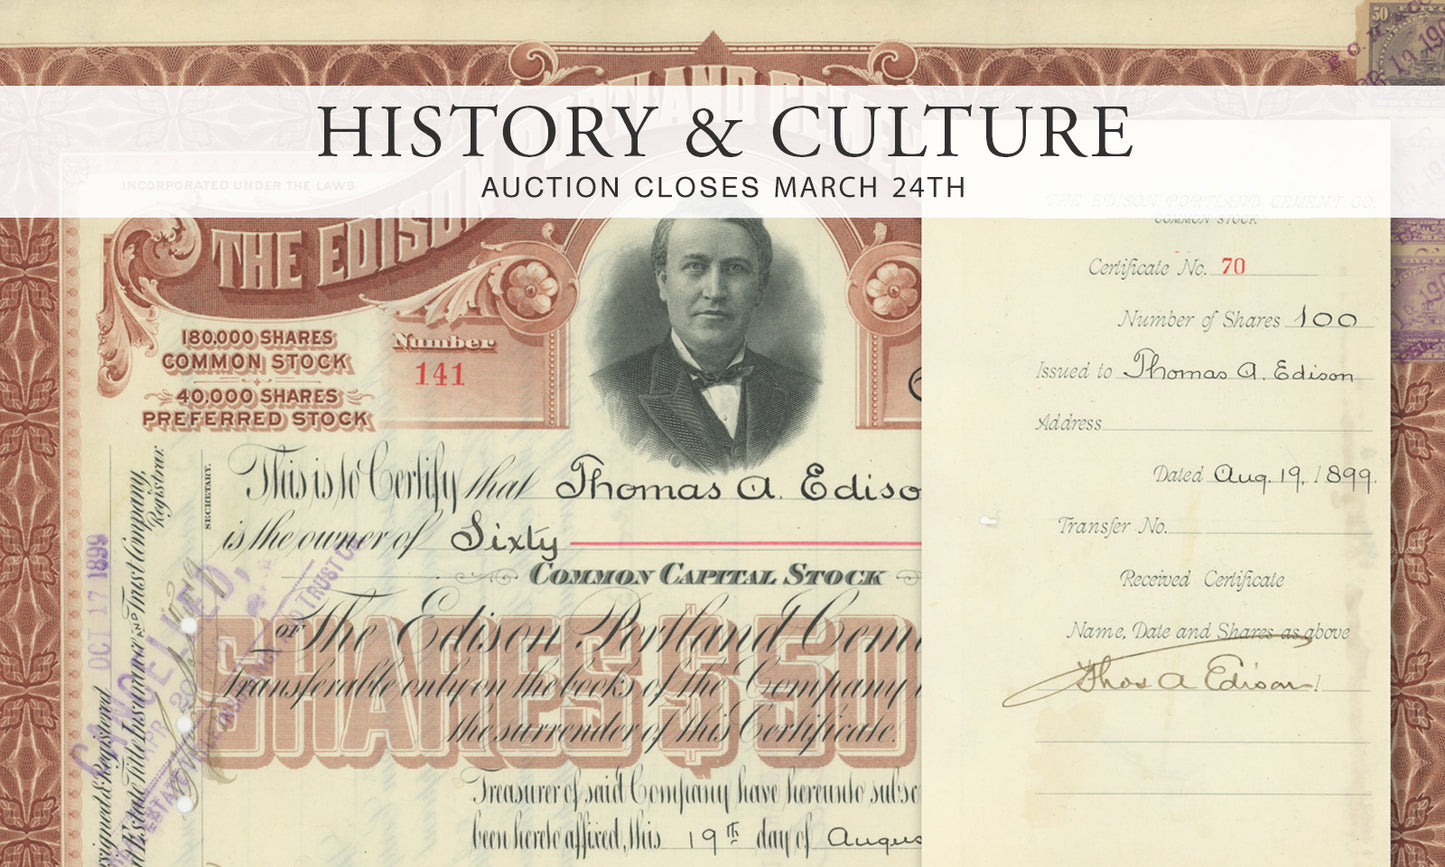 HISTORY & CULTURE
AUCTION CLOSES MARCH 24TH
INCORPORATED UNDER THE LAWS
THE EDISON
180,000 SHARES
COMMON STOCK
40,000 SHARES
PREFERRED STOCK
Number
141
This is to Certify that Thomas A. Ediso
is the owner of Sixty
COMMON CAPITAL STOCK
OF The Edison Portland Cem
SHARES $50
Transferable only on the books of the Company
the surrender of this Certificate.
Treasurer of said Company have hereunto subsc
been hereto affixed, this 19th day of Augus
SECRETARY.
Registrar
OCT 17 1899
CANCELLED,
THE EDISON PORTLAND CEMENT CO.
COMMON STOCK
Certificate No. 70
Number of Shares 100
Issued to Thomas A. Edison
Address
Dated Aug. 19, 1899.
Transfer No.
Received Certificate
Name, Date and Shares as above
Thos A Edison
50